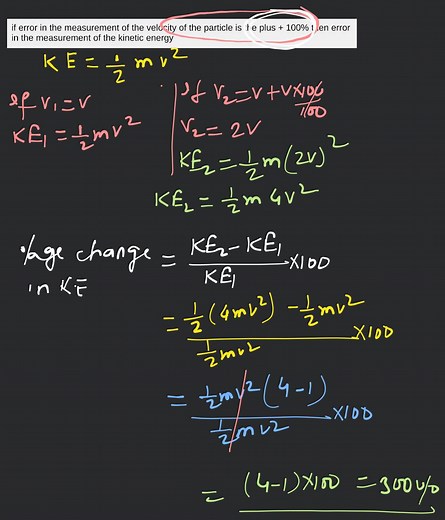 if error in the measurement of the velocity of the particle is be plus + 100% then error
in the measurement of the kinetic energy
KE = 1/2 mv²
If V₁ = V
KE₁ = 1/2 mv²
If V₂ = V + V×100/100
V₂ = 2V
KE₂ = 1/2 m(2v)²
KE₂ = 1/2 m 4v²
%age change in KE = (KE₂ - KE₁)/KE₁ ×100
= (1/2(4mv²) - 1/2 mv²)/(1/2 mv²) ×100
= (1/2 mv²(4-1))/(1/2 mv²) ×100
= (4-1)×100 = 300%